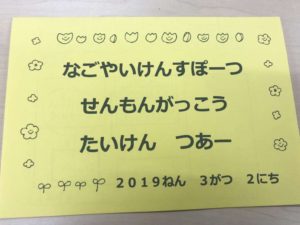 なごやいけんすぽーつ
せんもんがっこう
たいけん　つあー
２０１９ねん　３がつ　２にち